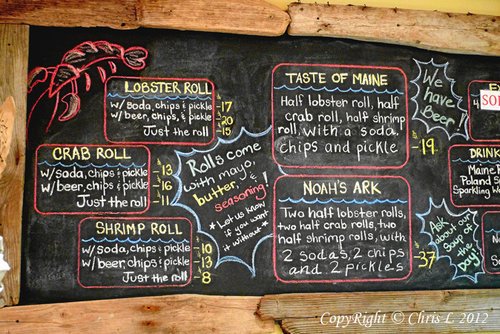 LOBSTER ROLL
w/soda, chips & pickle -17
w/beer, chips, & pickle -20
Just the roll -15
CRAB ROLL
w/soda, chips & pickle -13
w/beer, chips & pickle -16
Just the roll -11
SHRIMP ROLL
w/soda, chips & pickle -10
w/beer, chips & pickle -13
Just the roll -8
Rolls come
with mayo,
butter, &
seasoning!
* Let us know
if you want
it without *
TASTE OF MAINE
Half lobster roll, half
crab roll, half shrimp
roll, with a soda,
chips and pickle -19
NOAH'S ARK
Two half lobster rolls,
two half crab rolls, two
half shrimp rolls, with
2 sodas, 2 chips
and 2 pickles -37
We
have
Beer!
Ask
about our
Soup of
the
day!
SO
DRINK
Maine
Poland S
Sparkling Wa
CopyRight © Chris L 2012